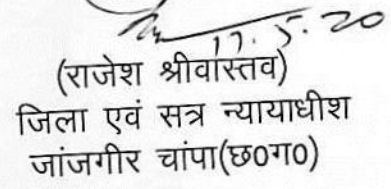 17.5.20
(राजेश श्रीवास्तव)
जिला एवं सत्र न्यायाधीश
जांजगीर चांपा(छ0ग0)